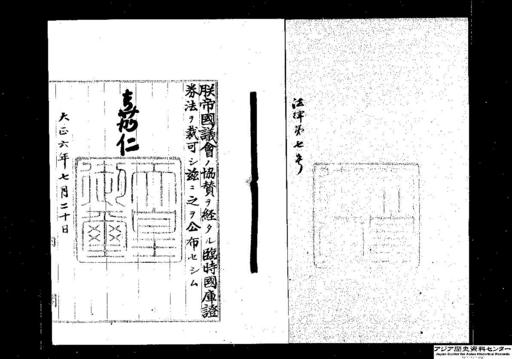 法律第七号
朕帝國議會ノ協賛ヲ経タル臨時國庫證
券法ヲ裁可シ玆ニ之ヲ公布セシム
嘉仁
天皇御璽
大正六年七月二十日
アジア歴史資料センター
Japan Center for Asian Historical Records